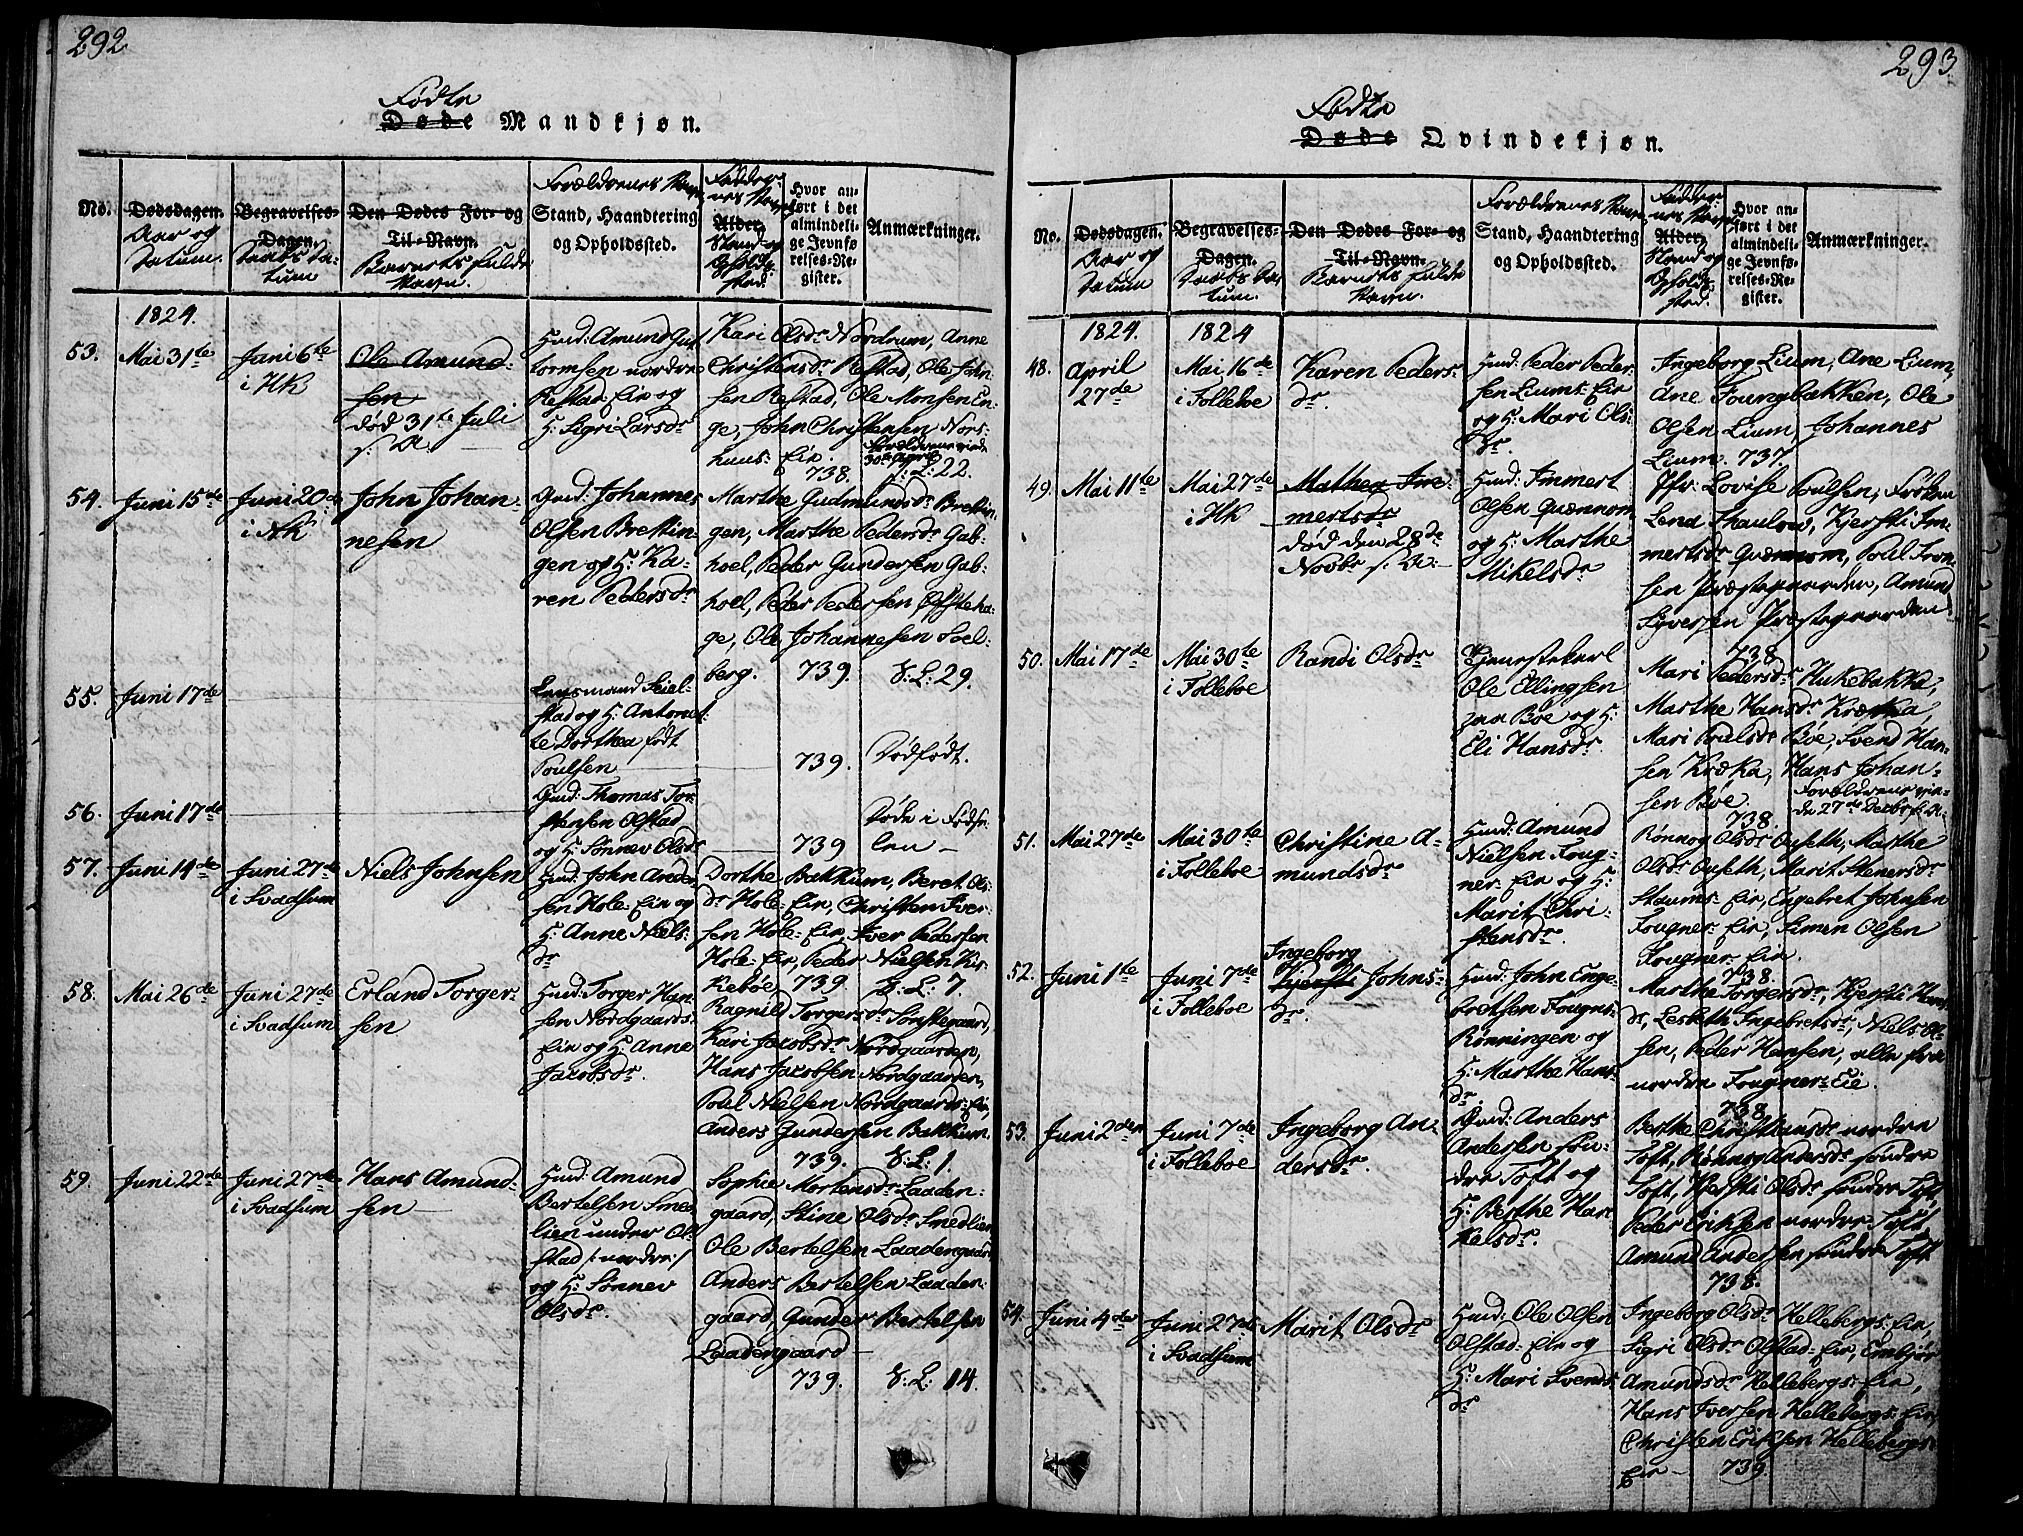 292
Fødte
Døde Mandkjøn.
No.
Dødsdagen.
Aar og
Datum.
Begravelses-
Dagen.
Daabs Da-
tum
Den Dødes For- og
Til-Navn.
Barnets fulde
Navn.
Forældrenes Navn,
Stand, Haandtering
og Opholdssted.
Fadder-
nes Navn,
Alder.
Stand og
Opholds-
sted.
Hvor an-
ført i det
almindeli-
ge Jevnfø-
relses-Re-
gister.
Anmærkninger.
1824.
53.
Mai 31te
Juni 6te
i HK
Ole Amund-
sen
død 31te Juli
s: A:
Huusd: Amund Gut-
tormsen nordre
Restad-Eie og
H: Sigri Larsdr
Kari Olsdr Nordrum, Anne
Christensdr Restad, Ole John-
sen Restad, Ole Monsen En-
ge, John Christensen Nors-
huus-Eie.
738.
Forældrene vied
30te April
s: L: 22.
54.
Juni 15de
Juni 20de
i HK
John Johan-
nesen
Gmd: Johannes
Olsen Brettin-
gen og H: Ka-
ren Pedersdr
Marthe Gudmundsdr Brettin-
gen, Marthe Pedersdr Gab-
hoel, Peder Gundersen Gab-
hoel, Peder Pedersen Øfsteha-
ge, Ole Johannesen Soel-
berg.
739.
V: L: 29.
55.
Juni 17de
Lensmand Seiel-
stad og H: Antonet-
te Dorthea født
Poulsen
739.
Dødfødt.
56.
Juni 17de
Gmd: Thomas Tor-
stensen Olstad
og H: Sønnev Olsdr
739
Døde i Fødse-
len
57.
Juni 14de
Juni 27de
i Svadsum
Niels Johnsen
Huusd: John Ander-
sen Hole-Eie og
H: Anne Niels-
dr
Dorthe Bakkum, Beret Ols-
dr Hole-Eie, Christen Iver-
sen Hole-Eie, Iver Pedersen
Hole-Eie, Peder Nielsen Kir-
keböe
739.
V: L: 7.
58.
Mai 26de
Juni 27de
i Svadsum
Erland Torger-
sen
Huusd: Torger Han-
sen Nordgaards-
Eie og H: Anne
Jacobsdr
Ragnild Torgersdr Sørstegaard,
Kari Jacobsdr Nordgaarden,
Hans Jacobsen Nordgaarden,
Poul Nielsen Nordgaards-Eie,
Anders Gundersen Bakkum.
739.
V: L: 1.
59.
Juni 22de
Juni 27de
i Svadsum
Hans Amund-
sen
Huusd: Amund
Bertelsen Smed-
lien under Ol-
stad /: nordre :/
og H: Sønnev
Olsdr.
Sophie Mortensdr Laaden-
gaard, Stine Olsdr Smedlien
Ole Bertelsen Laadengaard
Anders Bertelsen Laaden-
gaard, Gunder Bertelsen
Laadengaard
739.
V: L: 14.
293
Fødte
Døde Qvindekjøn.
No.
Dødsdagen.
Aar og
Datum
Begravelses-
Dagen.
Daabs Da-
tum.
Den Dødes For- og
Til-Navn.
Barnets fulde
Navn.
Forældrenes Navn,
Stand, Haandtering
og Opholdssted.
Faddre-
nes Navn,
Alder.
Stand og
Opholds-
sted.
Hvor an-
ført i det
almindeli-
ge Jevnfø-
relses-Re-
gister.
Anmærkninger.
1824.
1824
48.
April
27de
Mai 16de
i Folleboe
Karen Peders-
dr.
Huusd: Peder Peder-
sen Liums-Eie
og H: Mari Ols-
dr.
Ingeborg Lium, Ane Lium,
Ane Toungbakken, Ole
Olsen Lium, Johannes
Lium.
737.
49.
Mai 11te
Mai 27de
i HK
Mathea Im-
mertsdr
død den 28de
Novbr s: A:
Huusd: Immert
Olsen Quennom
og H: Marthe
Mikelsdr
Jfr: Lovise Poulsen, Frøken
Lena Thaulow, Kjersti Im-
mertsdr Quennom, Poul Iver-
sen Præstegaarden, Amund
Syversen Præstegaarden
738
50.
Mai 17de
Mai 30te
i Folleboe
Randi Olsdr
Tjenestekarl
Ole Ellingsen
paa Böe og H:
Eli Hansdr
Mari Pedersdr Hukebakka,
Marthe Hansdr Krækka,
Mari Poulsdr Böe, Svend Han-
sen Krækka, Hans Johan-
sen Böe.
738.
Forældrene vie-
de 27de Decbr f: A:
51.
Mai 27de
Mai 30te
i Folleboe
Christine A-
mundsdr
Huusd: Amund
Nielsen Foug-
ner-Eie og H:
Marit Chri-
stensdr
Rønnog Olsdr Ouseth, Marthe
Olsdr Ouseth, Marit Stenersdr
Staums-Eie, Engebret Johnsen
Fougner-Eie, Simen Olsen
Fougner-Eie.
738.
52.
Juni 1te
Juni 7de
i Folleboe
Ingeborg
Kjersti Johns-
dr.
Huusd: John Enge-
bretsen Fougner
Rønningen og
H: Marthe Hans-
dr
Marthe Torgersdr, Kjersti Hans-
dr, Lesbeth Ingebretsdr, Niels Ol-
sen, Peder Hansen, alle fra
nordre Fougner-Eie.
738
53.
Juni 2den
Juni 7de
i Folleboe
Ingeborg An-
dersdr.
Gmd: Anders
Andersen søn-
dre Toft og
H: Berthe Han-
kelsdr.
Berthe Christiansdr nordre
Toft, Rønnog Andersdr søndre
Toft, Kjersti Olsdr søndre Toft,
Peder Eriksen nordre Toft,
Amund Andersen søndre Toft
738.
54.
Juni 4de
Juni 27de
i Svadsum
Marit Olsdr
Huusd: Ole Olsen
Olstad-Eie og
H: Mari Svends-
dr
Ingeborg Olsdr Hellebergs-Eie,
Sigri Olsdr Olstad-Eie, Embjør
Amundsdr Hellebergs-Eie,
Hans Iversen Hellebergs-Eie
Christen Eriksen Hellebergs-
Eie
739.